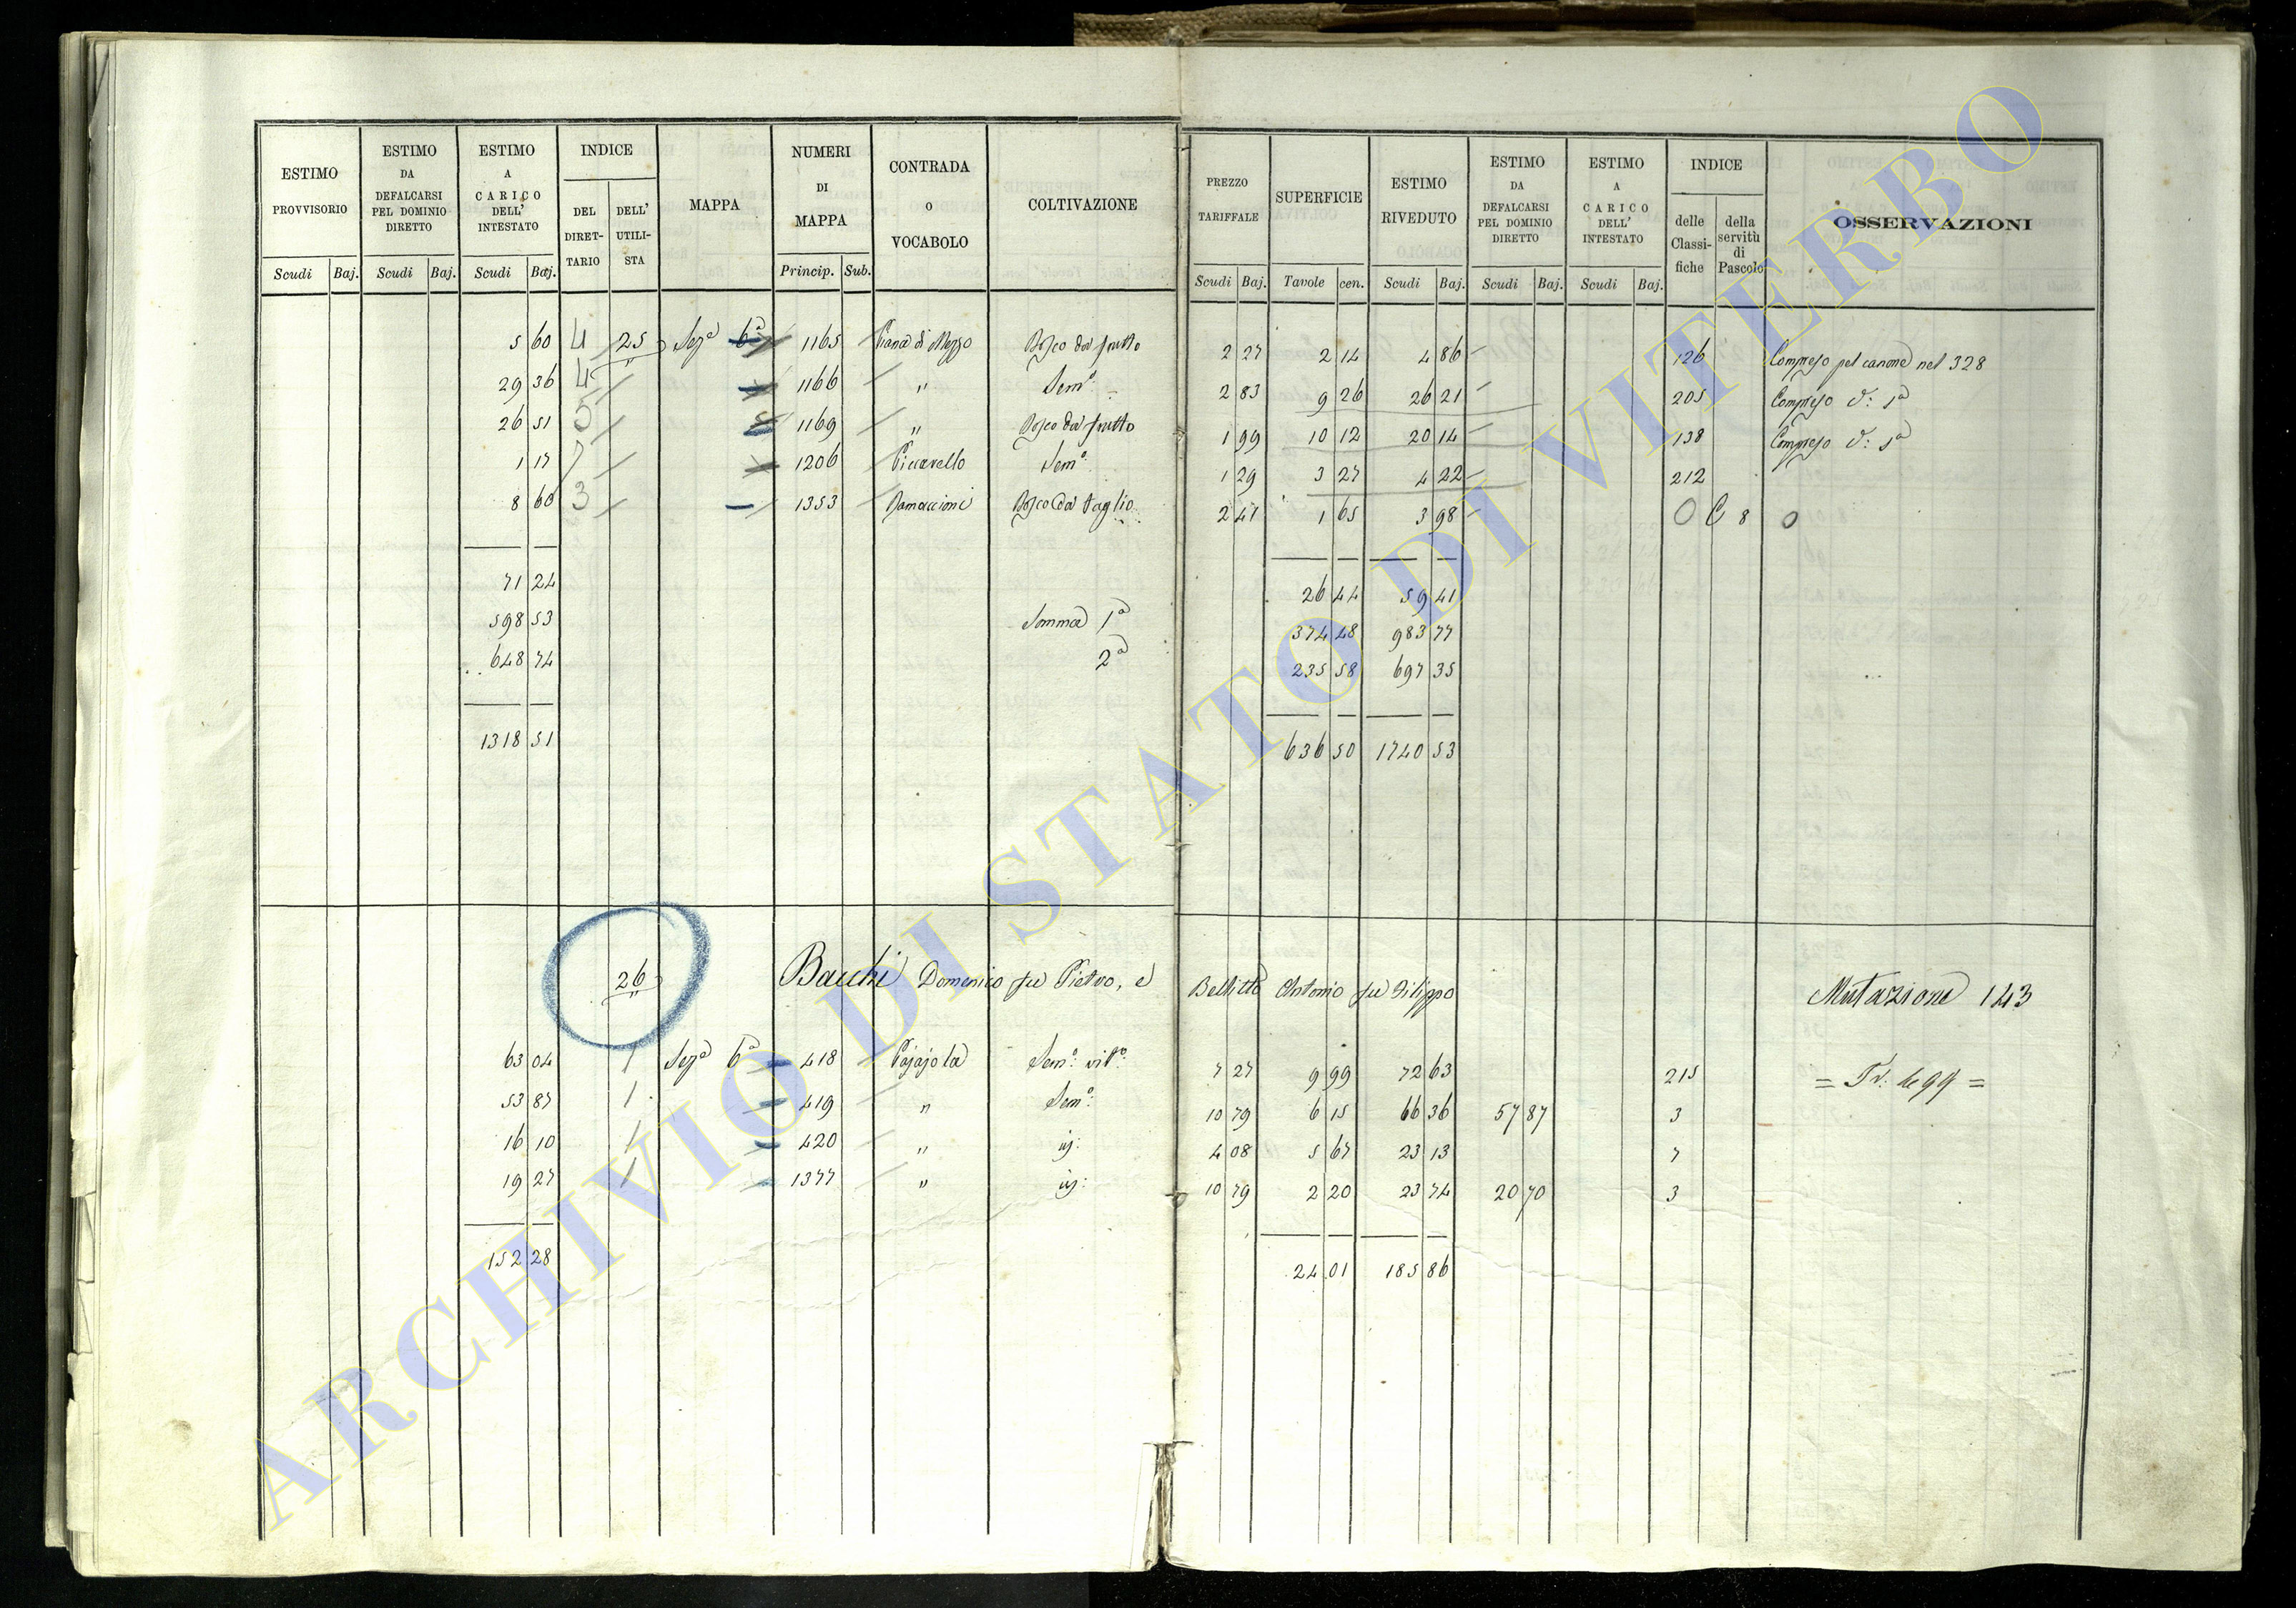 ESTIMO PROVVISORIO | ESTIMO DA DEFALCARSI PEL DOMINIO DIRETTO | ESTIMO A CARICO DELL' INTESTATO | INDICE | MAPPA | NUMERI DI MAPPA | CONTRADA O VOCABOLO | COLTIVAZIONE | PREZZO TARIFFALE | SUPERFICIE | ESTIMO RIVEDUTO | ESTIMO DA DEFALCARSI PEL DOMINIO DIRETTO | ESTIMO A CARICO DELL' INTESTATO | INDICE | OSSERVAZIONI
DEL DIRET-TARIO | DELL' UTILI-STA | delle Classi-fiche | della servitù di Pascolo
Scudi | Baj. | Scudi | Baj. | Scudi | Baj. | Princip. | Sub. | Scudi | Baj. | Tavole | cen. | Scudi | Baj. | Scudi | Baj. | Scudi | Baj.
5 60 | 4 | 25 | Seza 6a | 1165 | Piana di Mezzo | Bosco da frutto | 2 27 | 2 14 | 4 86 | 126 | Compreso pel canone nel 328
29 36 | 4 | 1166 | " | Semo: | 2 83 | 9 26 | 26 21 | 205 | Compreso d: 1a
26 51 | 5 | 1169 | " | Bosco da frutto | 1 99 | 10 12 | 20 14 | 138 | Compreso d: 1a
1 17 | 1206 | Piccarello | Semo: | 1 29 | 3 27 | 4 22 | 212
8 60 | 3 | 1353 | Bosco da taglio | 2 41 | 1 65 | 3 98 | O | C 8 | O
71 24 | 26 44 | 59 41
598 53 | Somma 1a | 374 48 | 983 77
648 74 | 2a | 235 58 | 697 35
1318 51 | 636 50 | 1740 53
26 | Bacchi Domenico fu Pietro, e Bellitto Antonio fu Filippo | Mutazione 143
63 04 | 1 | Seza 6a | 418 | Pajajola | Semo: vito: | 7 27 | 9 99 | 72 63 | 215 | = Tr: 1499 =
53 87 | 1 | 419 | " | Semo: | 10 79 | 6 15 | 66 36 | 57 87 | 3
16 10 | 1 | 420 | " | 4 08 | 5 67 | 23 13 | 7
19 27 | 1 | 1377 | " | 10 79 | 2 20 | 23 74 | 20 70 | 3
152 28 | 24 01 | 185 86
ARCHIVIO DI STATO DI VITERBO